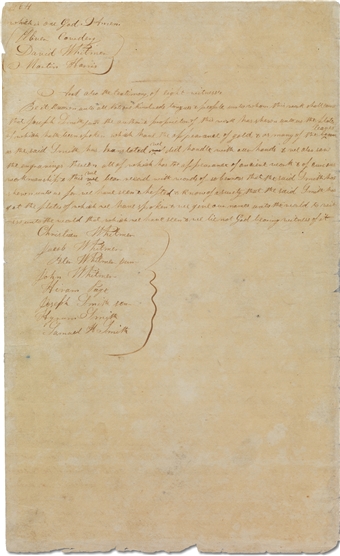 which is one God Amen
Oliver Cowdery
David Whitmer
Martin Harris
And also the testimony of eight witnesses
Be it known unto all nations kindreds tongues & people unto whom this work shall come
that Joseph Smith jr the author & proprietor of this work has shewn unto us the plates
of which hath been spoken which have the appearance of gold & as many of the leaves
as the said Smith has translated we did handle with our hands & we also saw
the engravings thereon all of which has the appearance of ancient work & of curious
workmanship & this we bear record with words of soberness that the said Smith has
shewn unto us for we have seen & hefted & know of a surety that the said Smith has
got the plates of which we have spoken & we give our names unto the world to wit
ness unto the world that which we have seen & we lie not God bearing witness of it
Christian Whitmer
Jacob Whitmer
Peter Whitmer
John Whitmer
Hiram Page
Joseph Smith sen
Hyrum Smith
Samuel H Smith